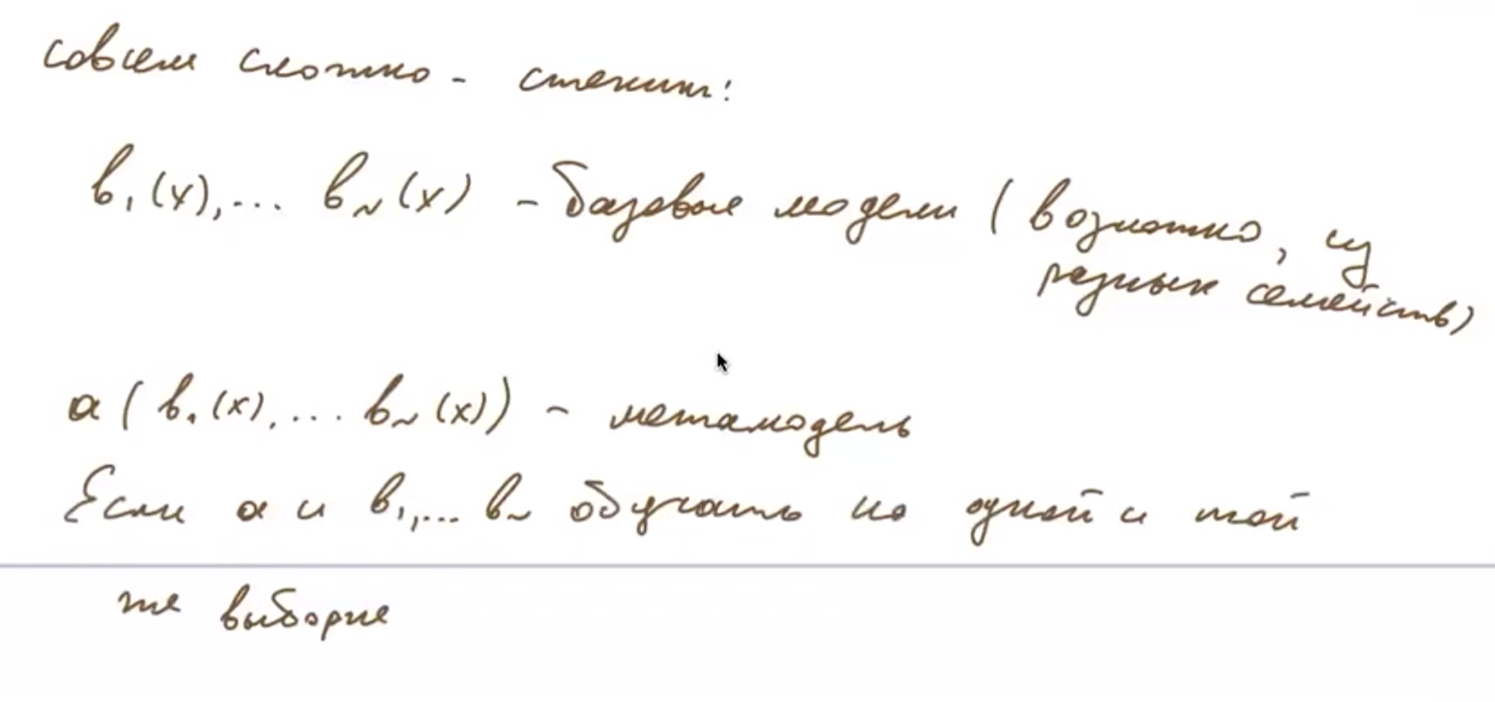 совсем сложно - стекинг:
b₁(x),... b_N(x) - базовые модели (возможно, из
разных семейств)
a(b₁(x),... b_N(x)) - метамодель
Если a и b₁,... b_N обучать на одной и той
же выборке